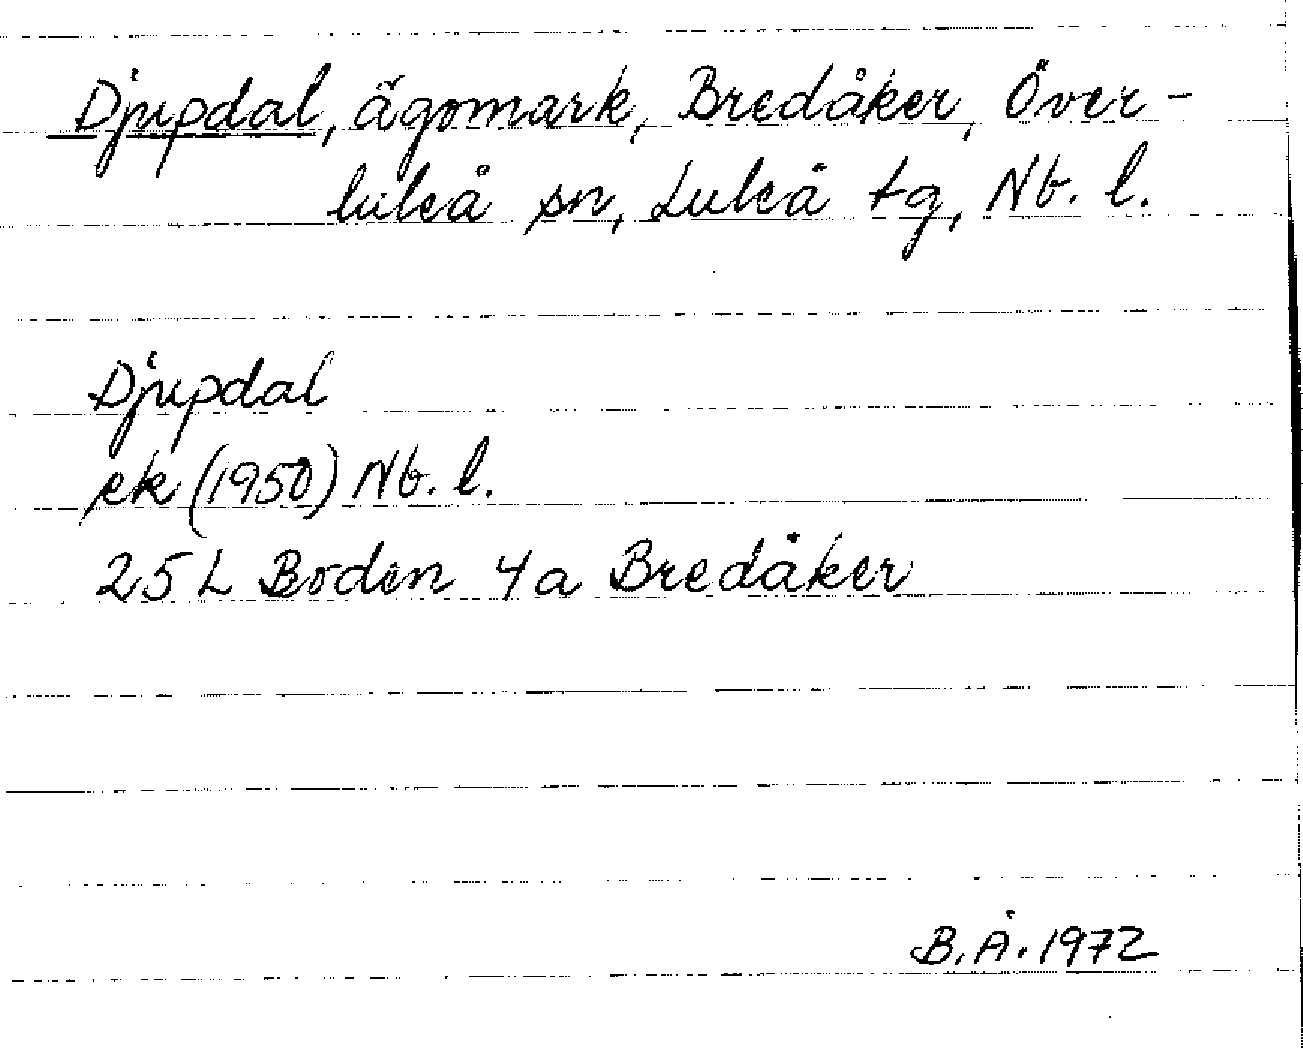 Djupdal, ägomark, Bredåker, Över-
luleå sn, Luleå tg, Nb. l.
Djupdal
ek (1950) Nb. l.
25 L Boden 4a Bredåker
B.Å. 1972